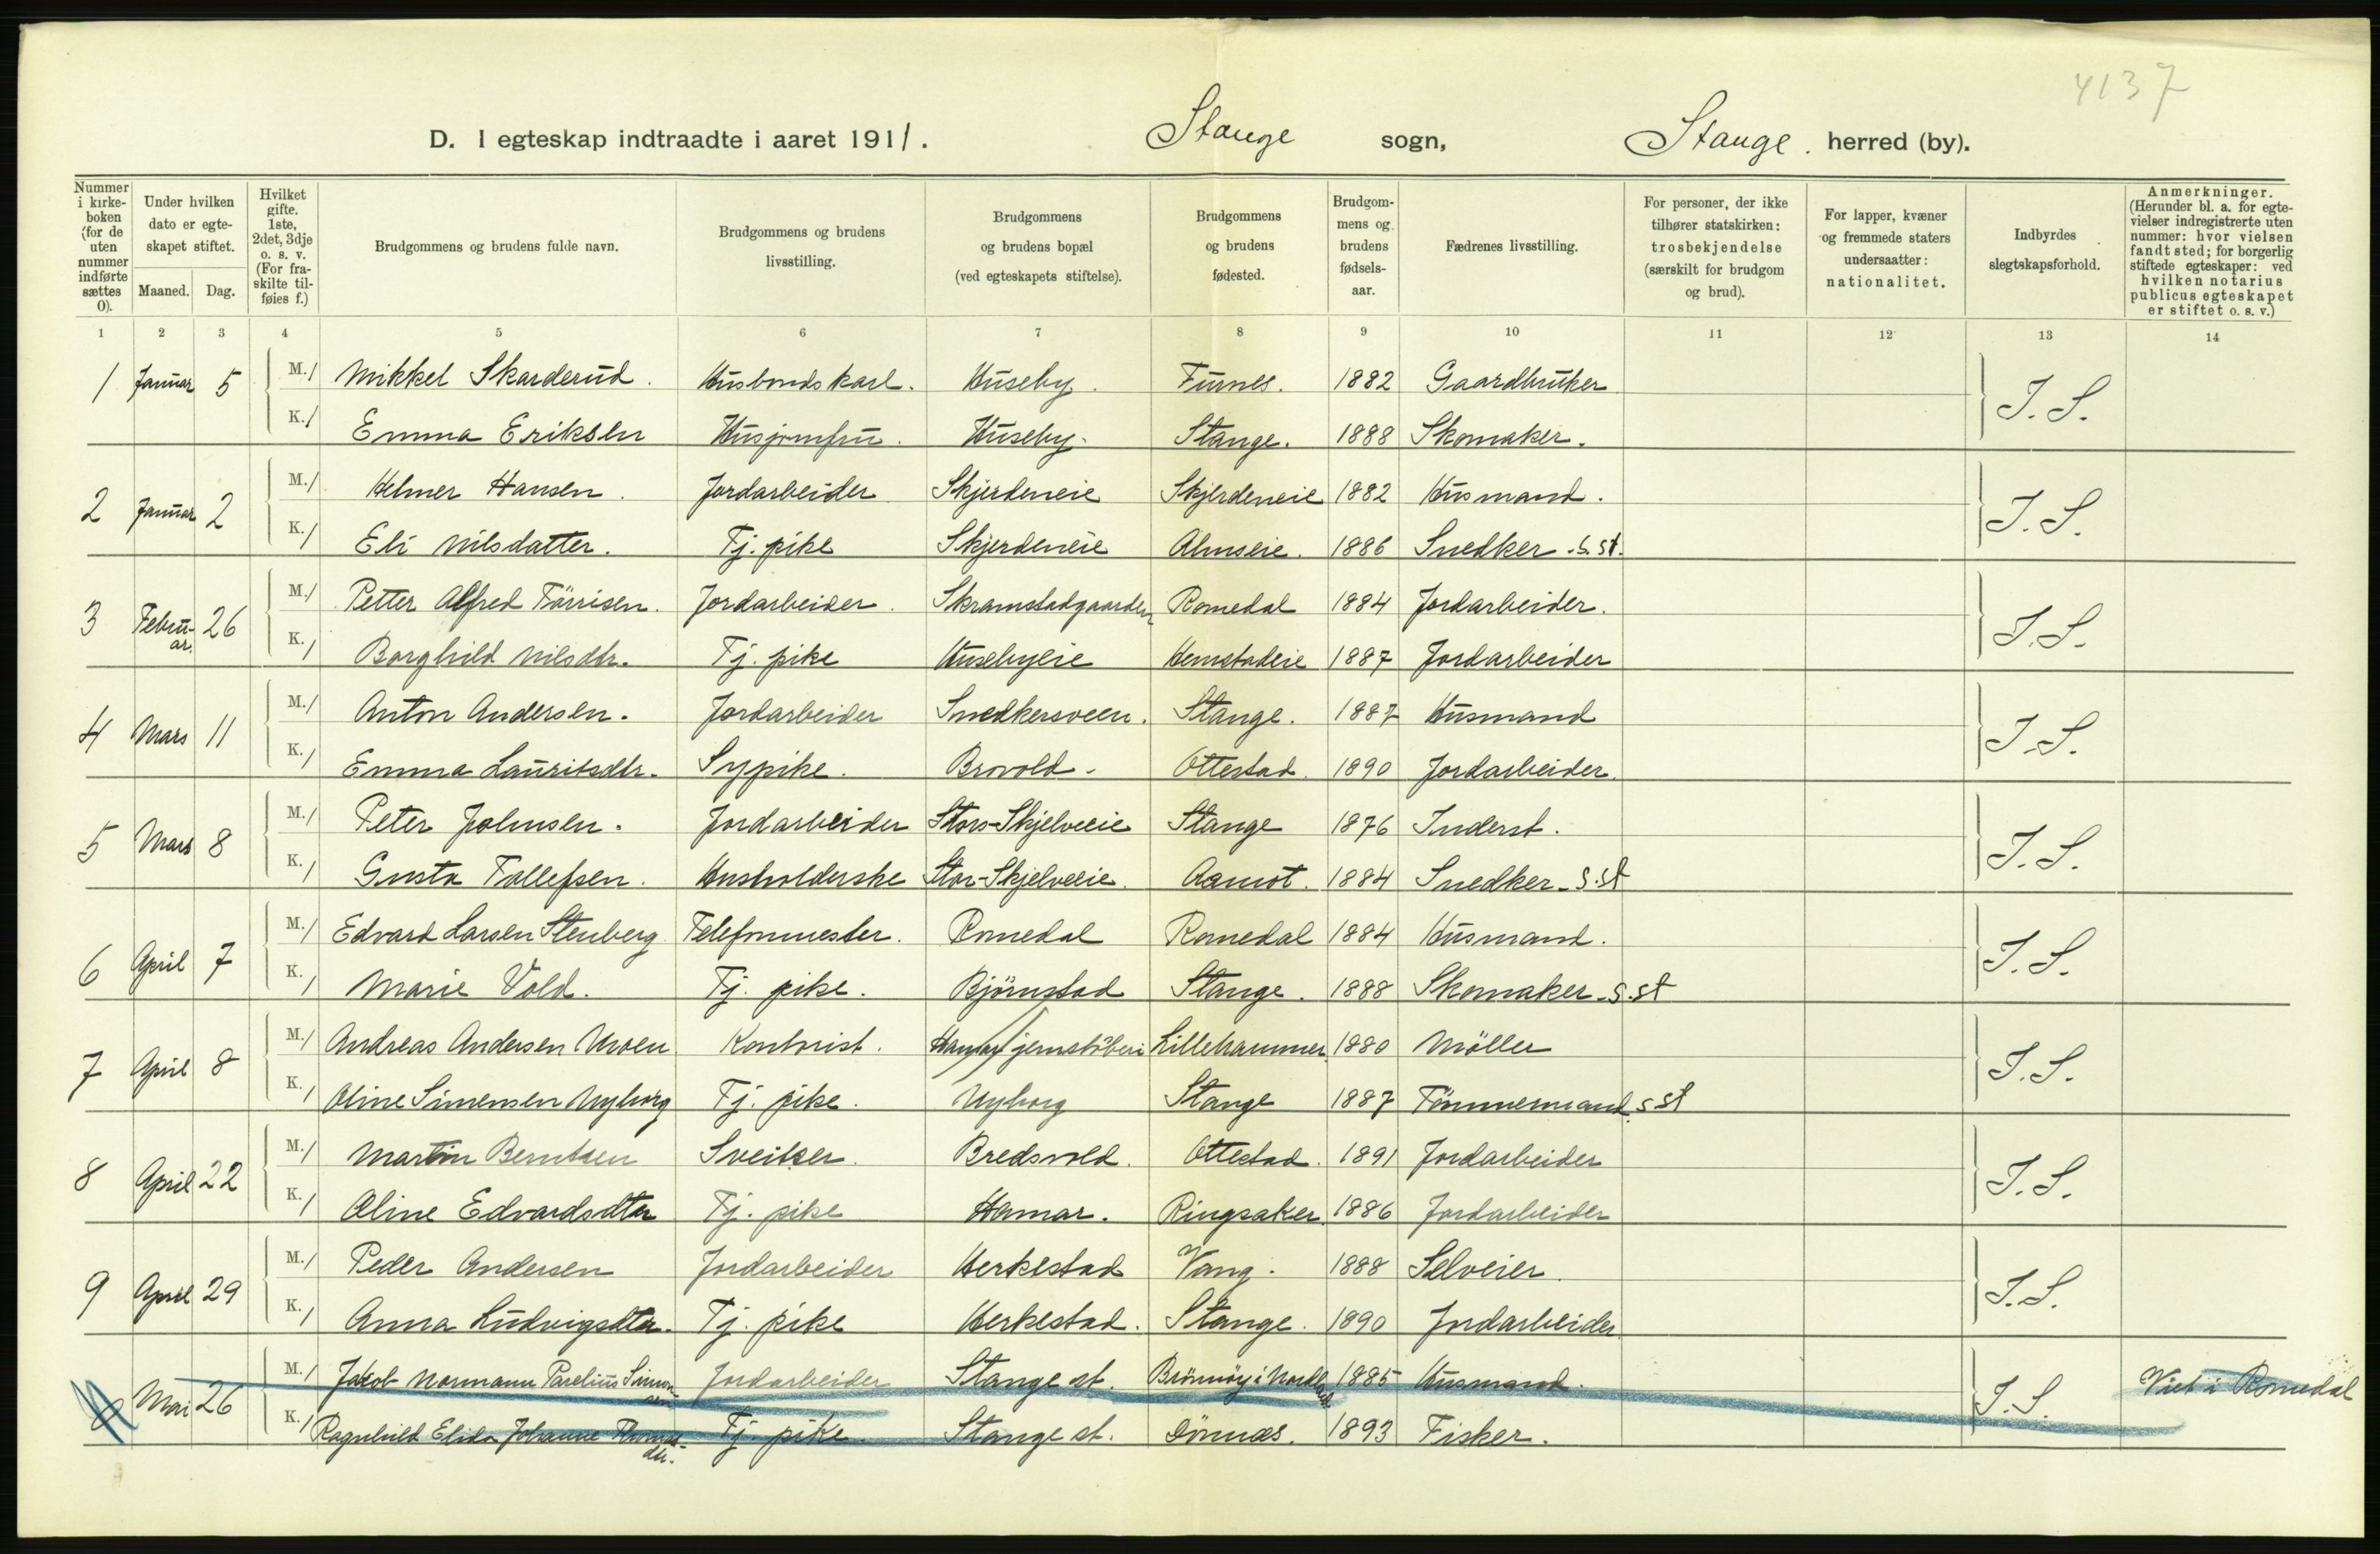 4137
D. I egteskap indtraadte i aaret 1911. Stange sogn, Stange. herred (by).
Nummer i kirkeboken (for de uten nummer indførte sættes 0).
Under hvilken dato er egteskapet stiftet.
Maaned. Dag.
Hvilket gifte. 1ste, 2det, 3dje o. s. v. (For fraskilte tilføies f.)
Brudgommens og brudens fulde navn.
Brudgommens og brudens livsstilling.
Brudgommens og brudens bopæl (ved egteskapets stiftelse).
Brudgommens og brudens fødested.
Brudgommens og brudens fødselsaar.
Fædrenes livsstilling.
For personer, der ikke tilhører statskirken: trosbekjendelse (særskilt for brudgom og brud).
For lapper, kvæner og fremmede staters undersaatter: nationalitet.
Indbyrdes slegtskapsforhold.
Anmerkninger. (Herunder bl. a. for egtevielser indregistrerte uten nummer: hvor vielsen fandt sted; for borgerlig stiftede egteskaper: ved hvilken notarius publicus egteskapet er stiftet o. s. v.)
1 2 3 4 5 6 7 8 9 10 11 12 13 14
1 Januar 5 M. 1 Mikkel Skarderud. Husbondskarl. Huseby. Furnes. 1882 Gaardbruker I. S.
K. 1 Emma Eriksen Husjomfru. Huseby. Stange. 1888 Skomaker.
2 Januar 2 M. 1 Helmer Hansen. Jordarbeider Skjerdeneie Skjerdeneie 1882 Husmand. I. S.
K. 1 Eli Nilsdatter. Tj. pike Skjerdeneie Almseie. 1886 Snedker. s. st.
3 Februar. 26 M. 1 Petter Alfred Törrisen. Jordarbeider. Skramstadgaarden Romedal 1884 Jordarbeider. I. S.
K. 1 Borghild Nilsdtr. Tj. pike Husebyeie Hemstadeie 1887 Jordarbeider
4 Mars 11 M. 1 Anton Andersen. Jordarbeider Snedkersveen. Stange. 1887 Husmand I. S.
K. 1 Emma Lauritsdtr. Sypike. Brovold. Ottestad. 1890 Jordarbeider.
5 Mars 8 M. 1 Peter Johnsen. Jordarbeider Stor-Skjelveeie Stange 1876 Inderst. I. S.
K. 1 Gusta Tollefsen. Husholderske Stor-Skjelveeie. Aamot. 1884 Snedker - s. st
6 April 7 M. 1 Edvard Larsen Stenberg Telefonmester. Romedal Romedal 1884 Husmand. I. S.
K. 1 Marie Vold. Tj. pike. Björnstad Stange. 1888 Skomaker - s. st
7 April 8 M. 1 Andreas Andersen Moen Kontorist. Hamar jernstöberi Lillehammer. 1880 Möller I. S.
K. 1 Oline Simensen Nyborg Tj. pike. Nyborg Stange 1887 Tömmermand s. st
8 April 22 M. 1 Martin Berntsen Sveitser. Bredsvold. Ottestad. 1891 Jordarbeider I. S.
K. 1 Oline Edvardsdtr Tj. pike Hamar. Ringsaker 1886 Jordarbeider
9 April 29 M. 1 Peder Andersen Jordarbeider Herkestad Vang. 1888 Selveier. I. S.
K. 1 Anna Ludvigsdtr. Tj. pike Herkestad. Stange. 1890 Jordarbeider
0 Mai 26 M. 1 Jakob Normann Parelius Simonsen Jordarbeider Stange st. Brönnöy i Nordland 1885 Husmand. I. S. Viet i Romedal
K. 1 Ragnhild Elida Johanne Thomasdtr. Tj. pike. Stange st. Dönnæs. 1893 Fisker.